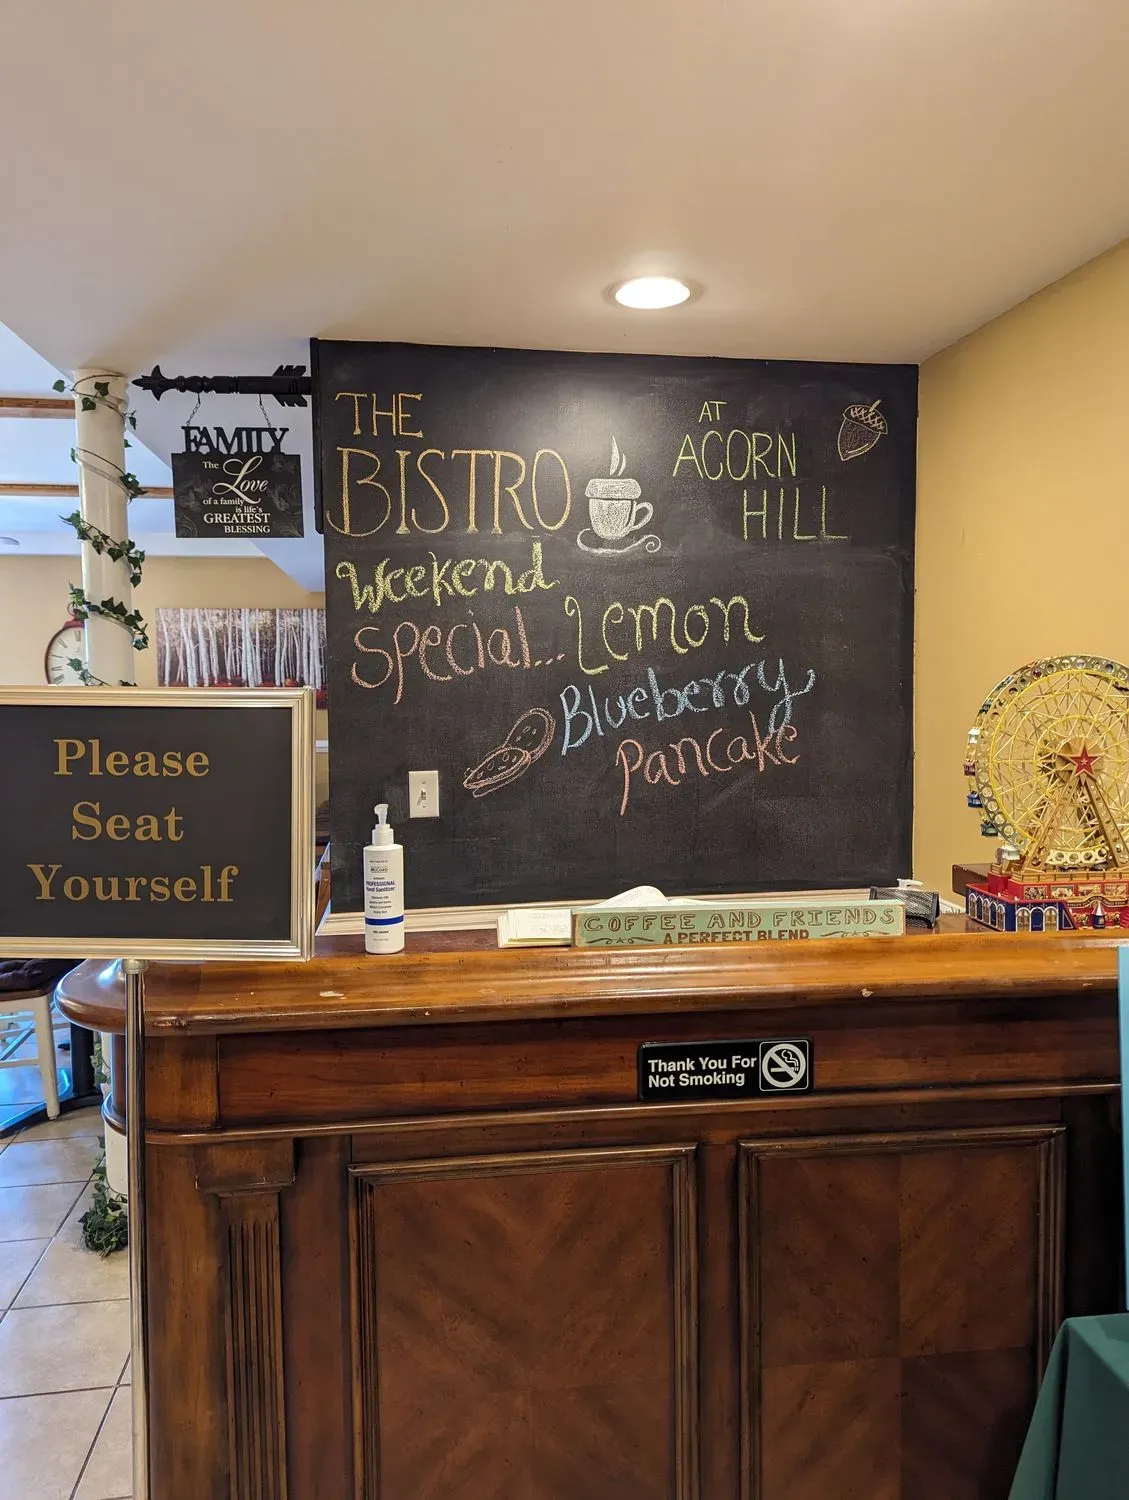 THE
BISTRO
AT
ACORN
HILL
Weekend
Special...
Lemon
Blueberry
Pancake
FAMILY
The
Love
of a family
is life's
GREATEST
BLESSING
Please
Seat
Yourself
PROFESSIONAL
Hand Sanitizer
COFFEE AND FRIENDS
A PERFECT BLEND
Thank You For
Not Smoking